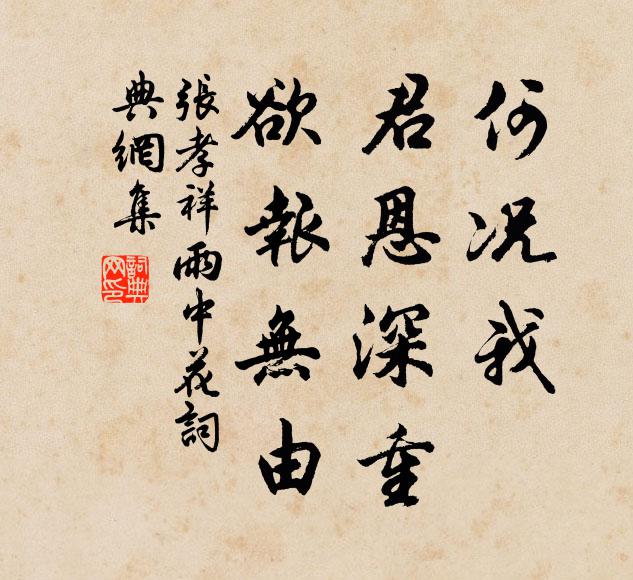 何况我
君恩深重
欲報無由
張孝祥雨中花詞
典網集
詞典網印